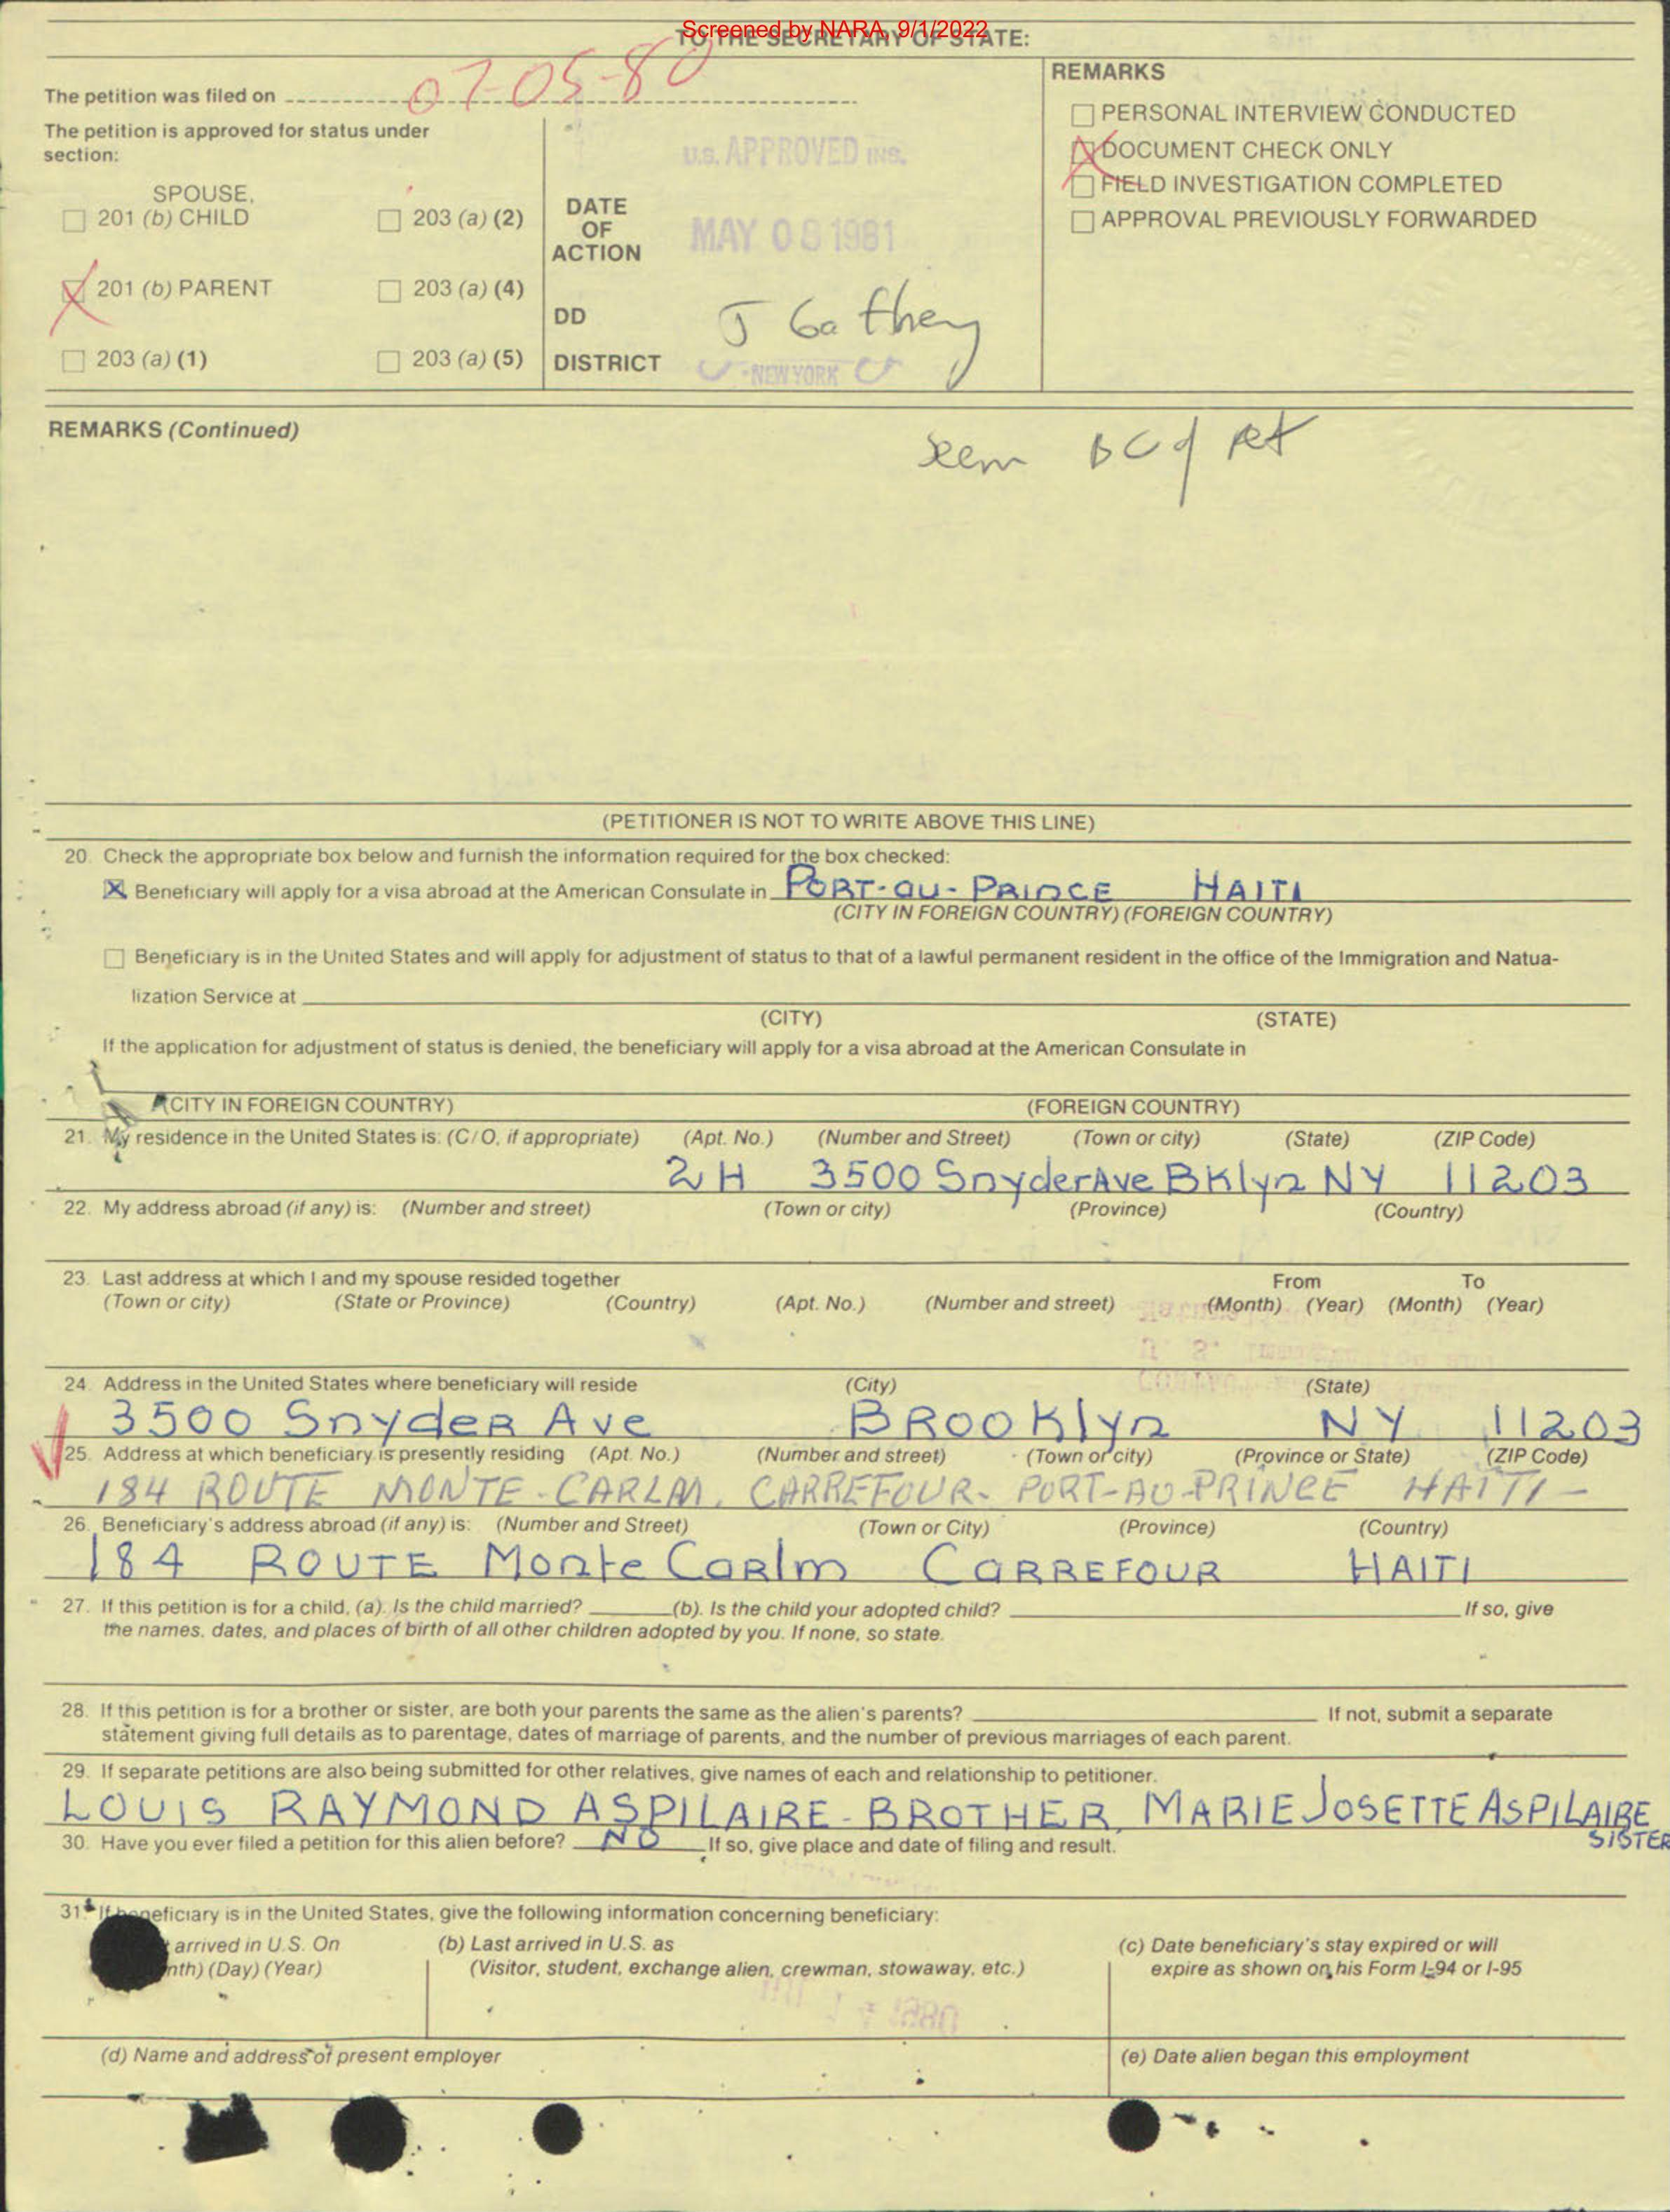 Screened by NARA, 9/1/2022
TO THE SECRETARY OF STATE:
The petition was filed on 07-05-80
The petition is approved for status under
section:
SPOUSE,
201 (b) CHILD
203 (a) (2)
201 (b) PARENT
203 (a) (4)
203 (a) (1)
203 (a) (5)
DATE
OF
ACTION
DD
DISTRICT
U.S. APPROVED INS.
MAY 08 1981
J Gathey
NEW YORK
REMARKS
PERSONAL INTERVIEW CONDUCTED
DOCUMENT CHECK ONLY
FIELD INVESTIGATION COMPLETED
APPROVAL PREVIOUSLY FORWARDED
REMARKS (Continued)
(PETITIONER IS NOT TO WRITE ABOVE THIS LINE)
20. Check the appropriate box below and furnish the information required for the box checked:
X Beneficiary will apply for a visa abroad at the American Consulate in PORT-au-PRINCE HAITI
(CITY IN FOREIGN COUNTRY) (FOREIGN COUNTRY)
Beneficiary is in the United States and will apply for adjustment of status to that of a lawful permanent resident in the office of the Immigration and Natua-
lization Service at
(CITY) (STATE)
If the application for adjustment of status is denied, the beneficiary will apply for a visa abroad at the American Consulate in
(CITY IN FOREIGN COUNTRY) (FOREIGN COUNTRY)
21. My residence in the United States is: (C/O, if appropriate) (Apt. No.) (Number and Street) (Town or city) (State) (ZIP Code)
2H 3500 SnyderAve BKlyn NY 11203
22. My address abroad (if any) is: (Number and street) (Town or city) (Province) (Country)
23. Last address at which I and my spouse resided together From To
(Town or city) (State or Province) (Country) (Apt. No.) (Number and street) (Month) (Year) (Month) (Year)
24. Address in the United States where beneficiary will reside (City) (State)
3500 SnydeR Ave BROOKlyn NY 11203
25. Address at which beneficiary is presently residing (Apt. No.) (Number and street) (Town or city) (Province or State) (ZIP Code)
184 ROUTE MONTE-CARLM, CARREFOUR- PORT-AU-PRINCE HAITI-
26. Beneficiary's address abroad (if any) is: (Number and Street) (Town or City) (Province) (Country)
184 ROUTE Monte CaRlm CaRREFOUR HAITI
27. If this petition is for a child, (a). Is the child married? (b). Is the child your adopted child? If so, give
the names, dates, and places of birth of all other children adopted by you. If none, so state.
28. If this petition is for a brother or sister, are both your parents the same as the alien's parents? If not, submit a separate
statement giving full details as to parentage, dates of marriage of parents, and the number of previous marriages of each parent.
29. If separate petitions are also being submitted for other relatives, give names of each and relationship to petitioner.
LOUIS RAYMOND ASPILAIRE-BROTHER, MARIE JOSETTE ASPILAIRE
SISTER
30. Have you ever filed a petition for this alien before? NO If so, give place and date of filing and result.
31. If beneficiary is in the United States, give the following information concerning beneficiary:
arrived in U.S. On
(Day) (Year)
(b) Last arrived in U.S. as
(Visitor, student, exchange alien, crewman, stowaway, etc.)
(c) Date beneficiary's stay expired or will
expire as shown on his Form I-94 or I-95
(d) Name and address of present employer
(e) Date alien began this employment